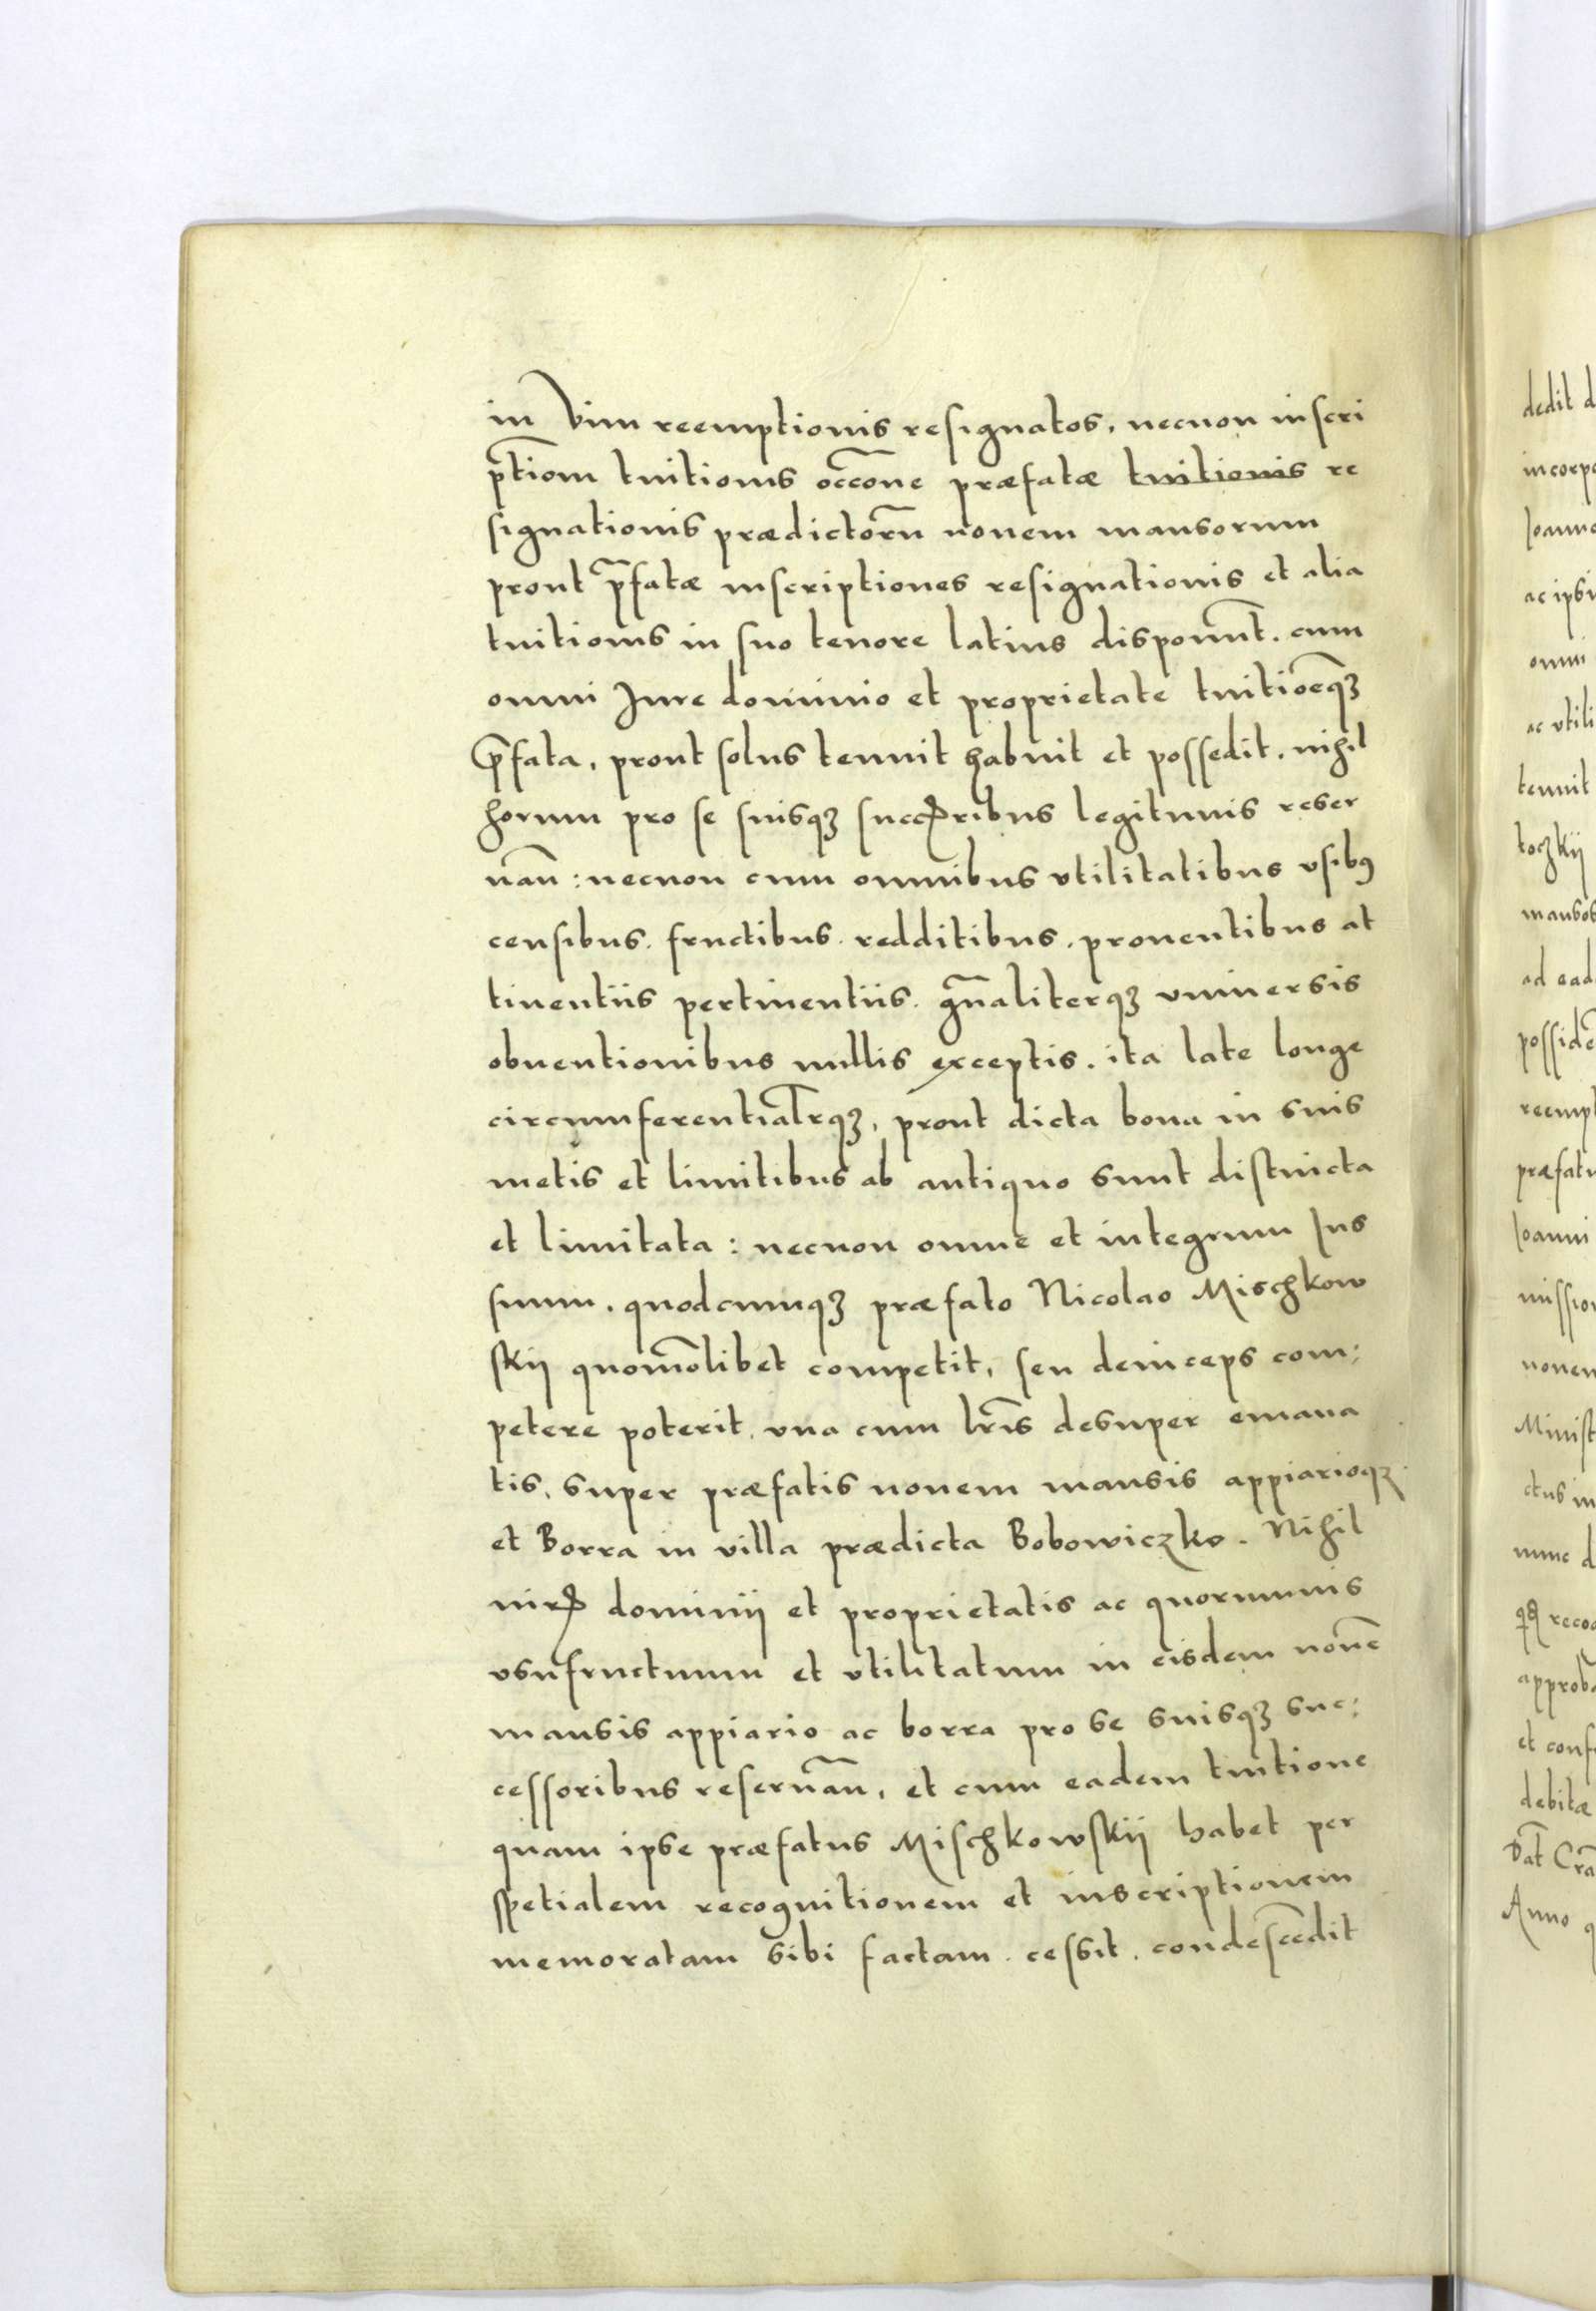 in Vim reemptionis resignatos, necnon inscri
p̄tiom tuitionis occ̄one præfatæ tuitionis re
signationis prædictorū nouem mansorum
prout p̄fatæ inscriptiones resignationis et alia
tuitionis in suo tenore latius disponūt. cum
omni Jure dominio et proprietate tuitiōeqꝫ
p̄fata, prout solus tenuit habuit et possedit. nihil
horum pro se suisqꝫ succꝭribus legitimis reser
uan̄: necnon cum omnibus vtilitatibus vsibꝰ
censibus. fructibus. redditibus. prouentibus at
tinentiis pertinentiis. gn̄aliterqꝫ vniuersis
obuentionibus nullis exceptis. ita late longe
circumferentialr̄qꝫ, prout dicta bona in suis
metis et limitibus ab antiquo sunt distincta
et limitata: necnon omne et integrum Jus
suum. quodcumqꝫ præfato Nicolao Mischkow
skij quomōlibet competit, seu deinceps com:
petere poterit. vna cum lr̄is desuper emana
tis, super præfatis nouem mansis appiarioqꝫ
et Borra in villa prædicta Bobowiczko. Nihil
iurꝭ dominij et proprietatis ac quorumuis
vsufructuum et vtilitatum in eisdem nouē
mansis appiario ac borra pro se suisqꝫ suc:
cessoribus reseruan̄, et cum eadem tuitione
quam ipse præfatus Mischkowskij habet per
spetialem recognitionem et inscriptionem
memoratam sibi factam. cessit. condescēdit
dedit d
Joanne
ac ipsi
omni
ac vtili
tenuit
toczkij
mansos
ad ead
possidē
reempt
præfatu
Joanni
mission
nouem
Minist
ctus in
nunc d
approba
et conf
debitæ
Dat̄ Cra
Anno q